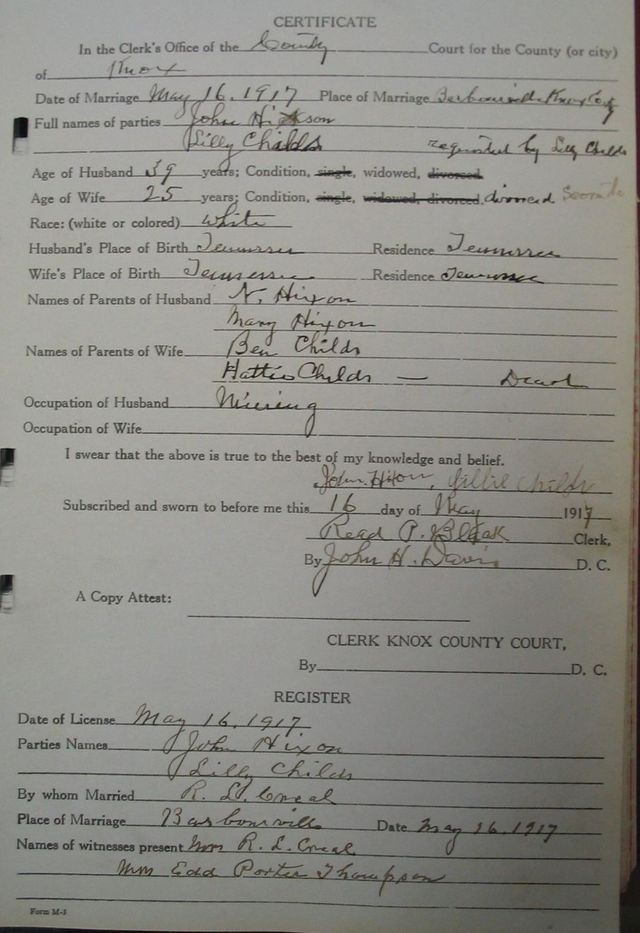 CERTIFICATE
In the Clerk's Office of the County Court for the County (or city)
of Knox
Date of Marriage May 16, 1917 Place of Marriage Barbourville Knox Co Ky
Full names of parties John Hixson
Lilly Childs requested by Lilly Childs
Age of Husband 39 years; Condition, single, widowed, divorced.
Age of Wife 25 years; Condition, single, widowed, divorced. divorced
Race: (white or colored) White
Husband's Place of Birth Tennessee Residence Tennessee
Wife's Place of Birth Tennessee Residence Tennessee
Names of Parents of Husband N. Hixon
Mary Hixon
Names of Parents of Wife Ben Childs
Hattie Childs — Dead
Occupation of Husband Mining
Occupation of Wife
I swear that the above is true to the best of my knowledge and belief.
John Hixon, Lillie Childs
Subscribed and sworn to before me this 16 day of May 1917
Read P. Black Clerk,
By John H. Davis D. C.
A Copy Attest:
CLERK KNOX COUNTY COURT,
By D. C.
REGISTER
Date of License May 16, 1917
Parties Names John Hixon
Lilly Childs
By whom Married R. L.
Place of Marriage Barbourville Date May 16, 1917
Names of witnesses present Mrs R. L.
Mrs Edd Porter Thompson
Form M-3